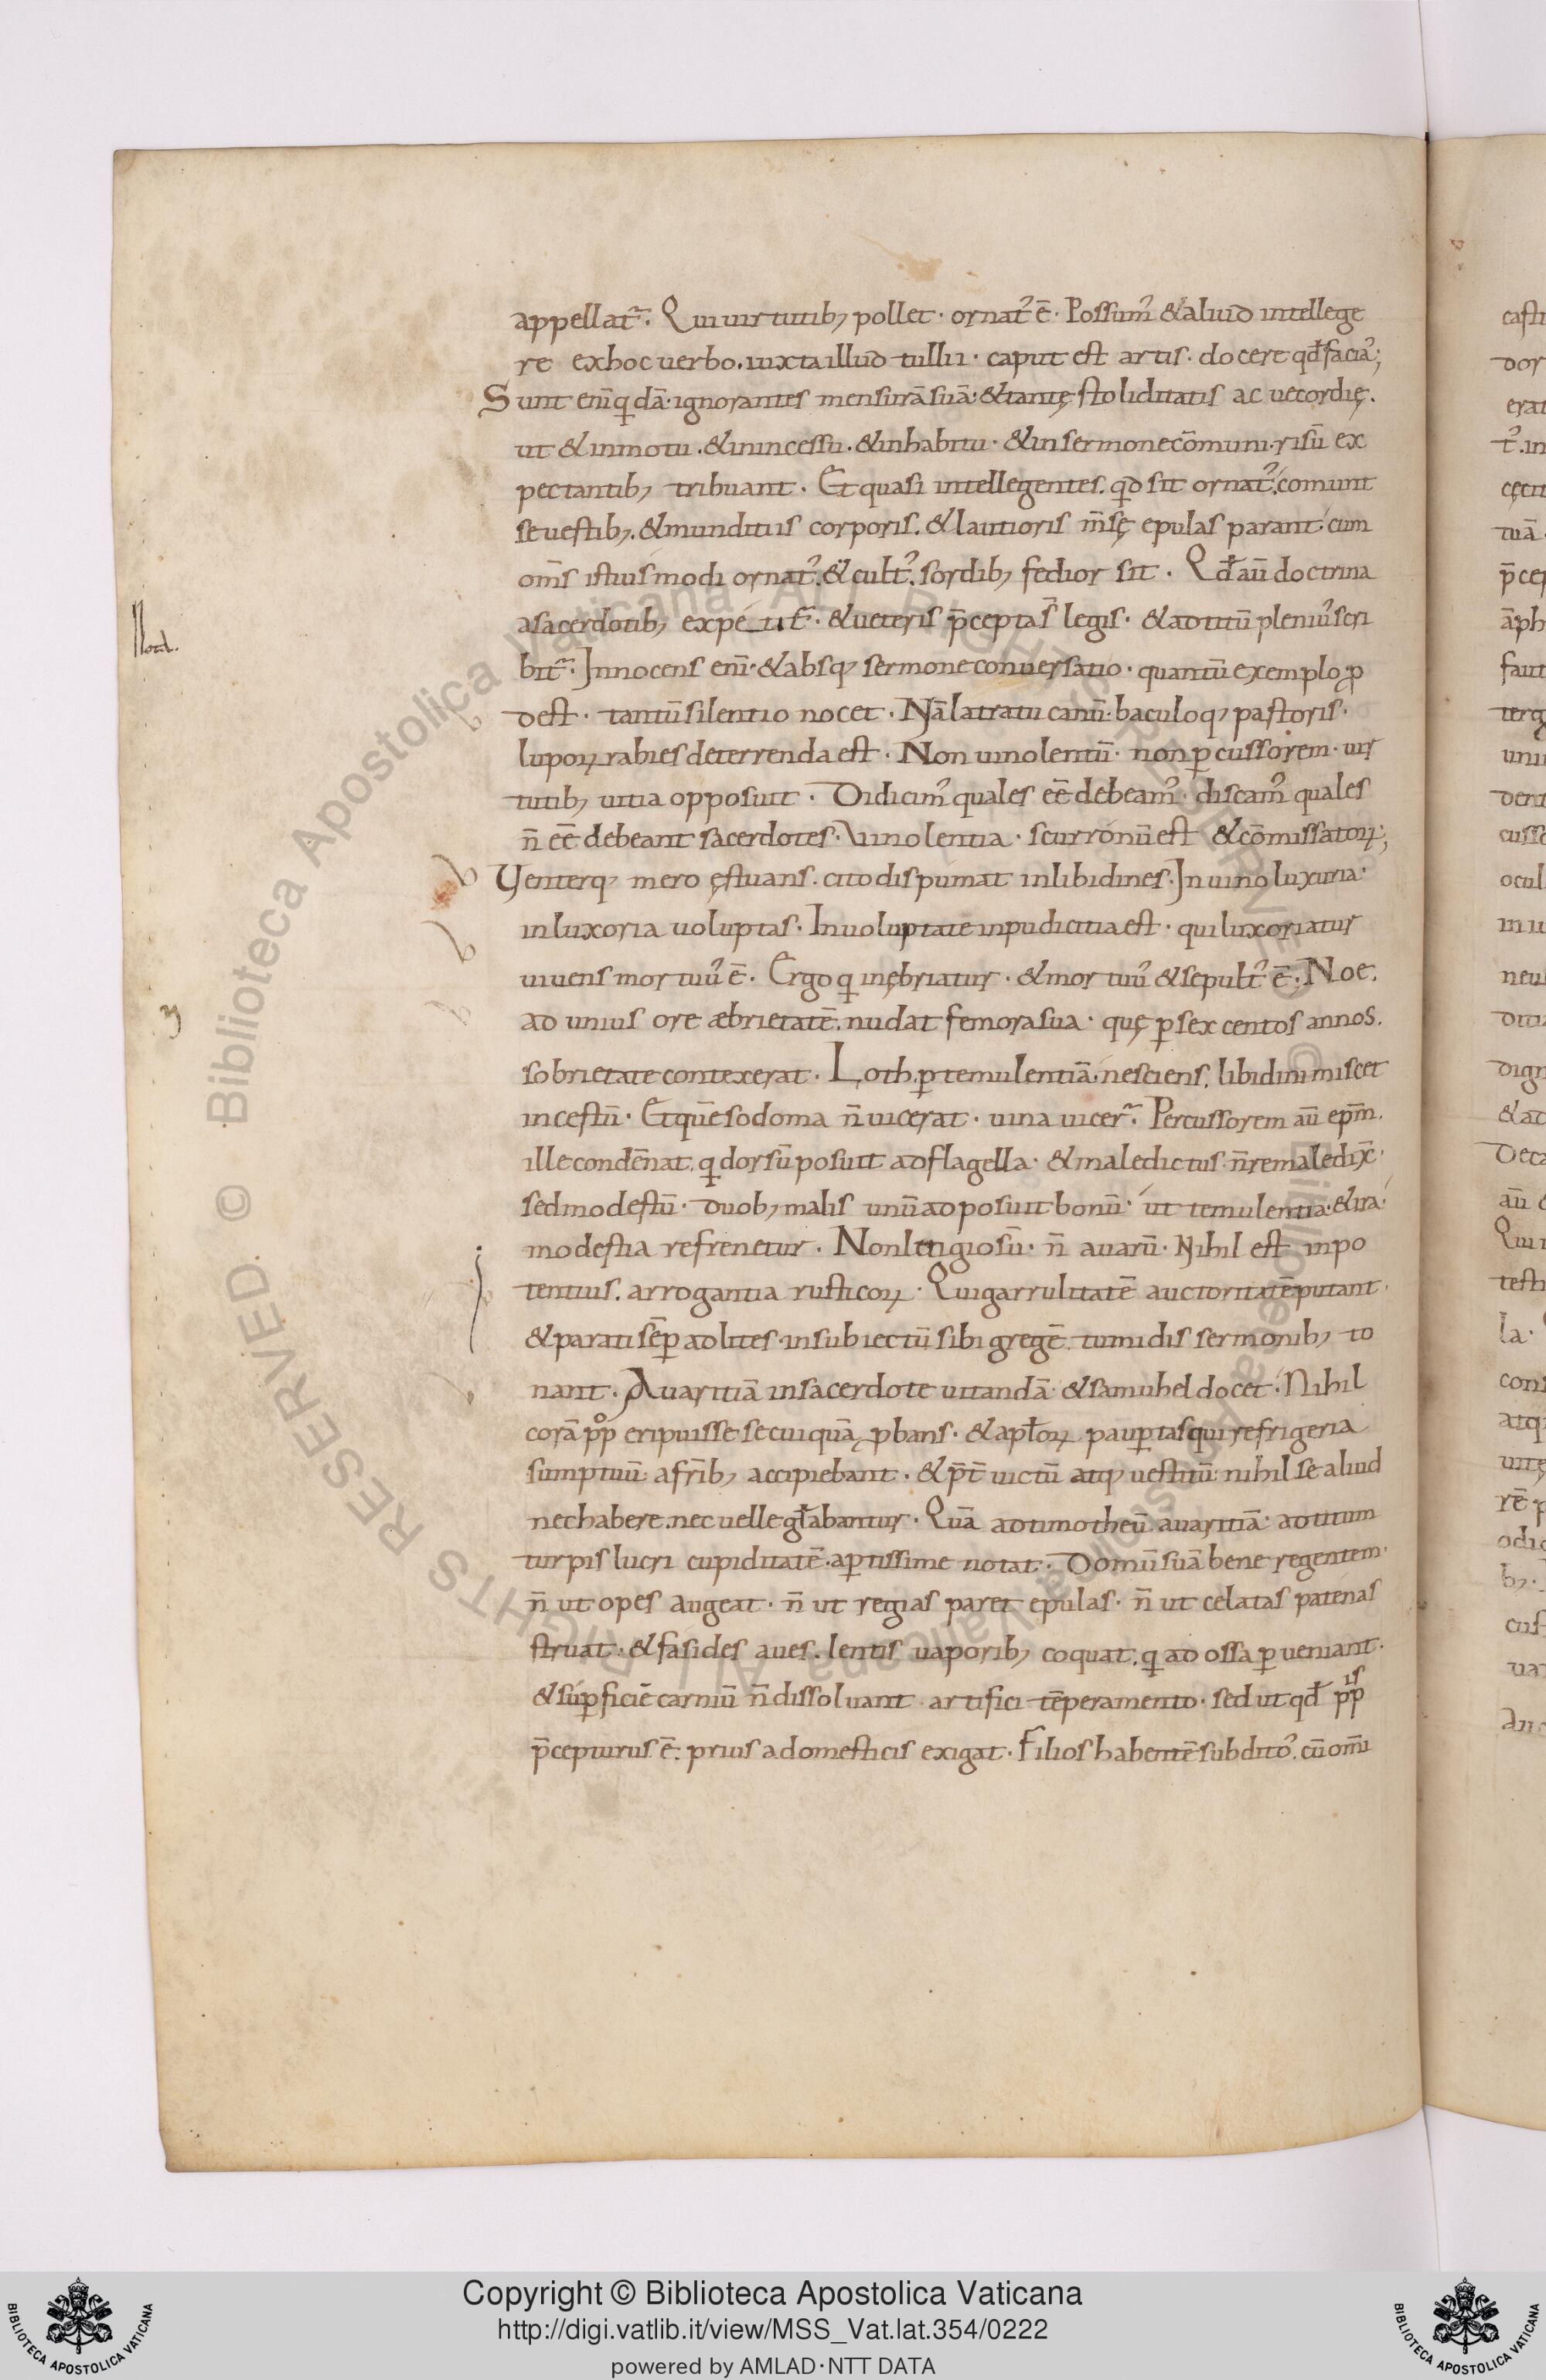 appellat᷑. Qui uirtutib; pollet · ornat᾽ ē · Possum᾽ & aliud intellege
re ex hoc uerbo. iuxta illud tullii · caput est artis · docere qđ faciā;
Sunt enī q̇dā · ignorantes mensurā suā · & tantę stoliditatis ac uecordię.
ut & in motu · & in incessu · & in habitu · & in sermone cōmuni · risū ex
pectantib; tribuant · Et quasi intellegentes. qd sit ornat᾽. comunt
se uestib;. & munditiis corporis. & lautioris m̄sę epulas parant · cum
om̄s istiusmodi ornat᾽. & cult᾽. sordib; fedior sit · Qđ aū doctrina
a sacerdotib; expetit᷑ · & ueteris p̄cepta s̄ legis · & ad titū pleniu᾽ scri
bit᷑ · Innocens enī · & absq; sermone conuersatio · quantū exemplo ꝓ
dest · tantū silentio nocet · Nā latratu canū · baculoq; pastoris ·
lupoꝝ rabies deterrenda est · Non uinolentū · non ꝑcussorem · uir
tutib; uitia opposuit · Didicim᾽ quales eē debeam᾽ · discam᾽ quales
n̄ eē debeant sacerdotes · Vinolentia · scurronū est & cōmissatoꝝ;
Venterq; mero ęstuans · cito dispumat in libidines · In uino luxuria ·
in luxoria uoluptas · In uoluptate inpudicitia est · qui luxoriatur
uiuens mortuu᾽ ē · Ergo q̇ inębriatur · & mortuu᾽ & sepult᾽ ē · Noe.
ad unius ore æbrietatē. nudat femora sua · quę ꝑ sexcentos annos.
sobrietate contexerat · Loth. ꝑ temulentiā. nesciens. libidini miscet
incestū · Et quē sodoma n̄ uicerat · uina uicer᷑ · Percussorem aū ep̄m.
ille condēnat. q̇ dorsū posuit ad flagella · & maledictus n̄ remaledix̄ ·
sed modestū · duob; malis unū adposuit bonū · ut temulentia · & ira ·
modestia refrenetur · Non letigiosū · n̄ auarū · Nihil est inpo
tentius. arrogantia rusticoꝝ · Qui garrulitatē auctoritatē putant ·
& parati sēꝑ ad lites · in subiectū sibi gregē. tumidis sermonib; to
nant · Auaritiā in sacerdote uitandā · & samuhel docet · Nihil
corā pp̊ eripuisse se cuiquā ꝓbans · & apƚoꝝ pauꝑtas qui refrigeria
sumptuū a fr̄ib; accipiebant · & p̄t̄ uictū atq; uestitū nihil se aliud
nec habere. nec uelle gƚabantur · Quā ad timotheū auaritiā · ad titum
turpis lucri cupiditatē · aꝑtissime notat · Domū suā bene regentem ·
n̄ ut opes augeat · n̄ ut regias paret epulas · n̄ ut celatas patenas
struat · & fasides aues · lentis uaporib; coquat. q̇ ad ossa ꝑueniant ·
& suꝑficiē carniū n̄ dissoluant · artifici tēperamento · sed ut qđ pp is
p̄cepturus ē: prius a domesticis exigat · Filios habentē subdito᾽. cū om̄i
Nota.
Copyright © Biblioteca Apostolica Vaticana
http://digi.vatlib.it/view/MSS_Vat.lat.354/0222
powered by AMLAD·NTT DATA
BIBLIOTECA APOSTOLICA VATICANA
BIBLIOTECA APOSTOLICA VATICANA